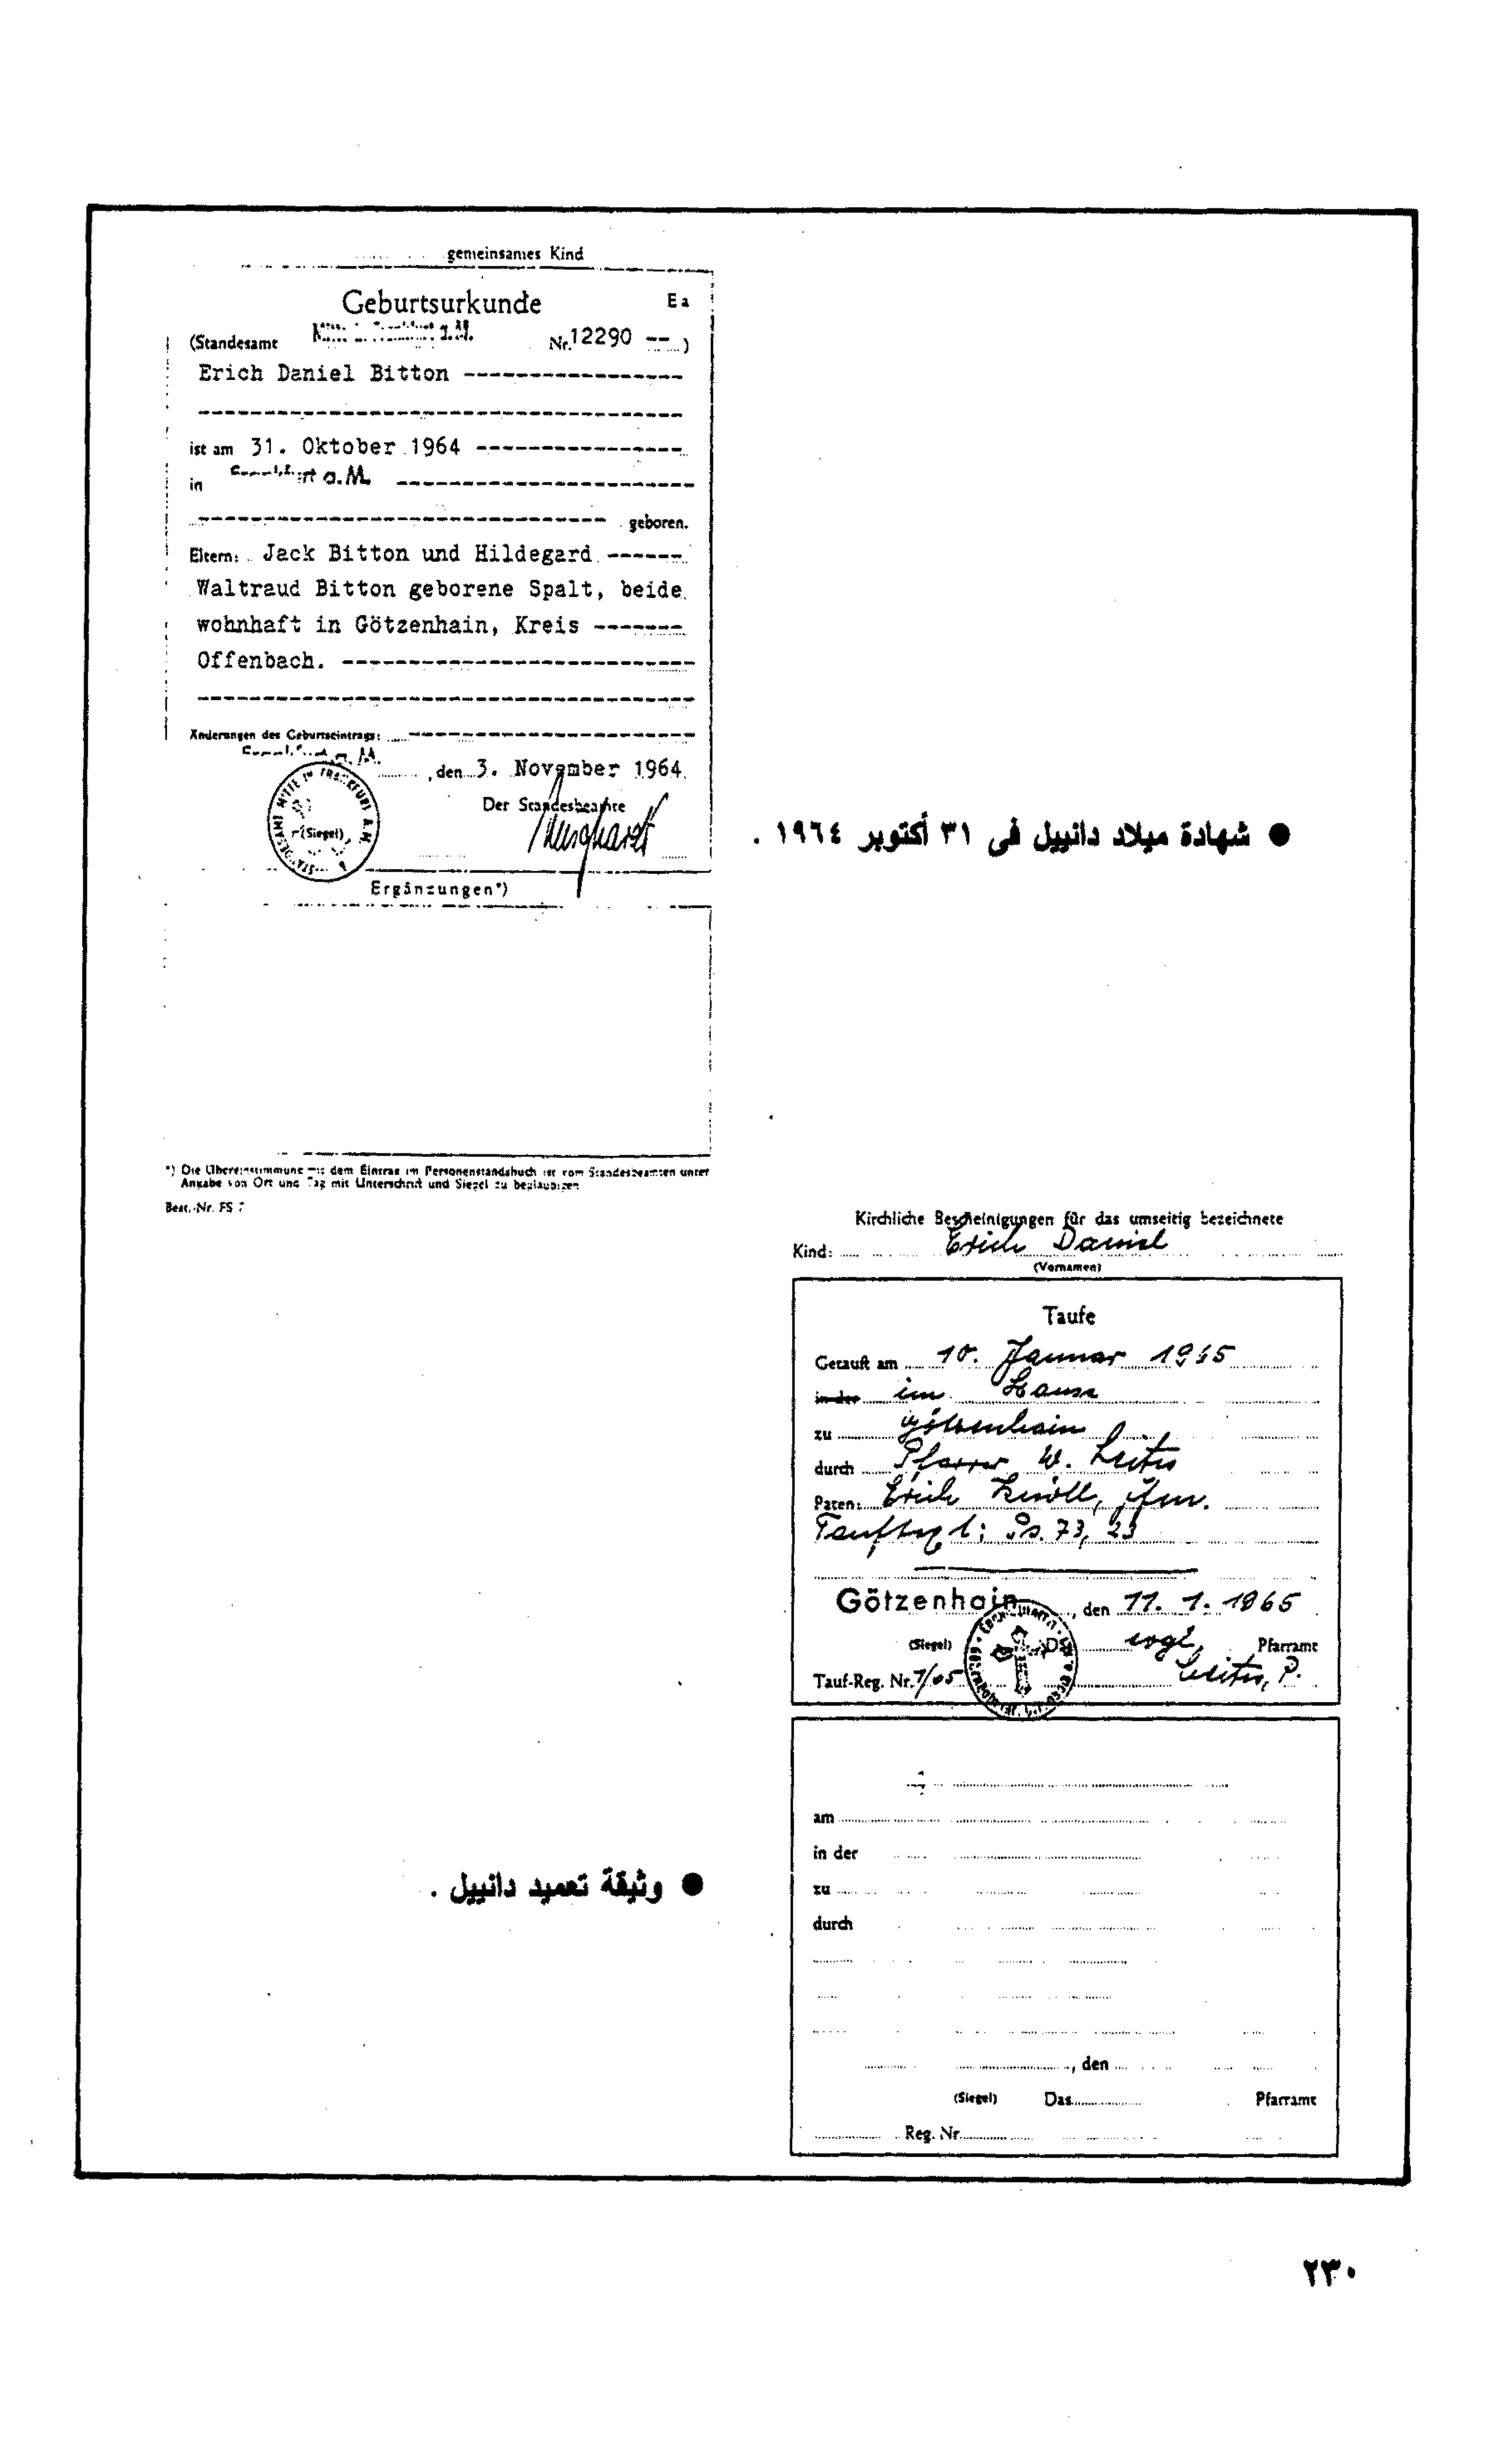 gemeinsames Kind
Geburtsurkunde
E a
(Standesamt Nr. 12290 -- )
Erich Daniel Bitton
ist am 31. Oktober 1964
in a.M.
geboren.
Eltern: Jack Bitton und Hildegard
Waltraud Bitton geborene Spalt, beide
wohnhaft in Götzenhain, Kreis
Offenbach.
Änderungen des Geburtseintrags:
, den 3. November 1964
Der Standesbeamte
(Siegel)
STANDESAMT MITTE IN FRANKFURT A.M.
Ergänzungen*)
*) Die Übereinstimmung mit dem Eintrag im Personenstandsbuch ist vom Standesbeamten unter
Angabe von Ort und Tag mit Unterschrift und Siegel zu beglaubigen
Best.-Nr. FS
● شهادة ميلاد دانييل فى ٣١ أكتوبر ١٩٦٤ .
Kirchliche Bescheinigungen für das umseitig bezeichnete
Kind: Erich Daniel
(Vornamen)
Taufe
Getauft am 10. Januar 1965
in der im Hause
zu Götzenhain
durch Pfarrer W.
Paten: Erich
Ps. 73, 23
Götzenhain, den 11. 1. 1965
(Siegel) evgl. Pfarramt
Tauf-Reg. Nr.
am
in der
zu
durch
, den
(Siegel) Das Pfarramt
Reg. Nr.
● وثيقة تعميد دانييل .
٢٣٠